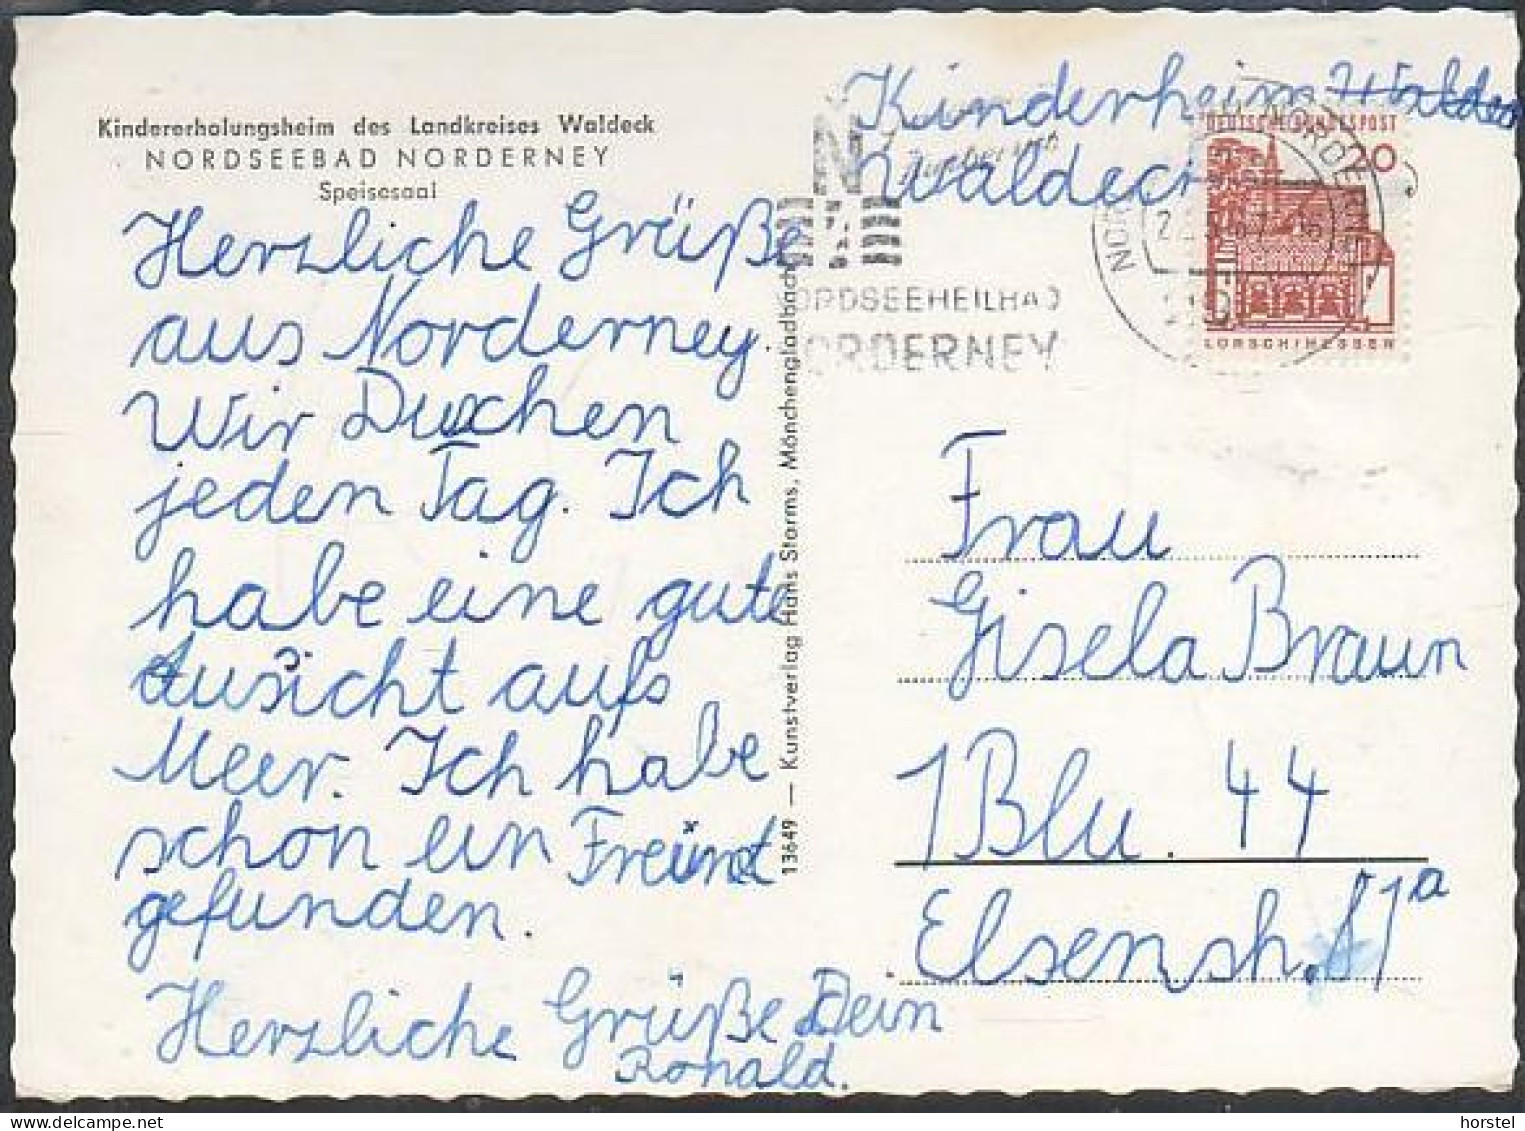 Kindererholungsheim des Landkreises Waldeck
NORDSEEBAD NORDERNEY
Speisesaal
Herzliche Grüße
aus Norderney.
Wir Duschen
jeden Tag. Ich
habe eine gute
Aussicht aufs
Meer. Ich habe
schon ein Freund
gefunden.
Herzliche Grüße Dein
Ronald.
13649 — Kunstverlag Hans Storms, Mönchengladbach
Kinderheim
Waldeck
NORDSEEHEILBAD
NORDERNEY
DEUTSCHE BUNDESPOST
20
LORSCH/HESSEN
Frau
Gisela Braun
1 Blu. 44
Elsensh. 81a
horstel